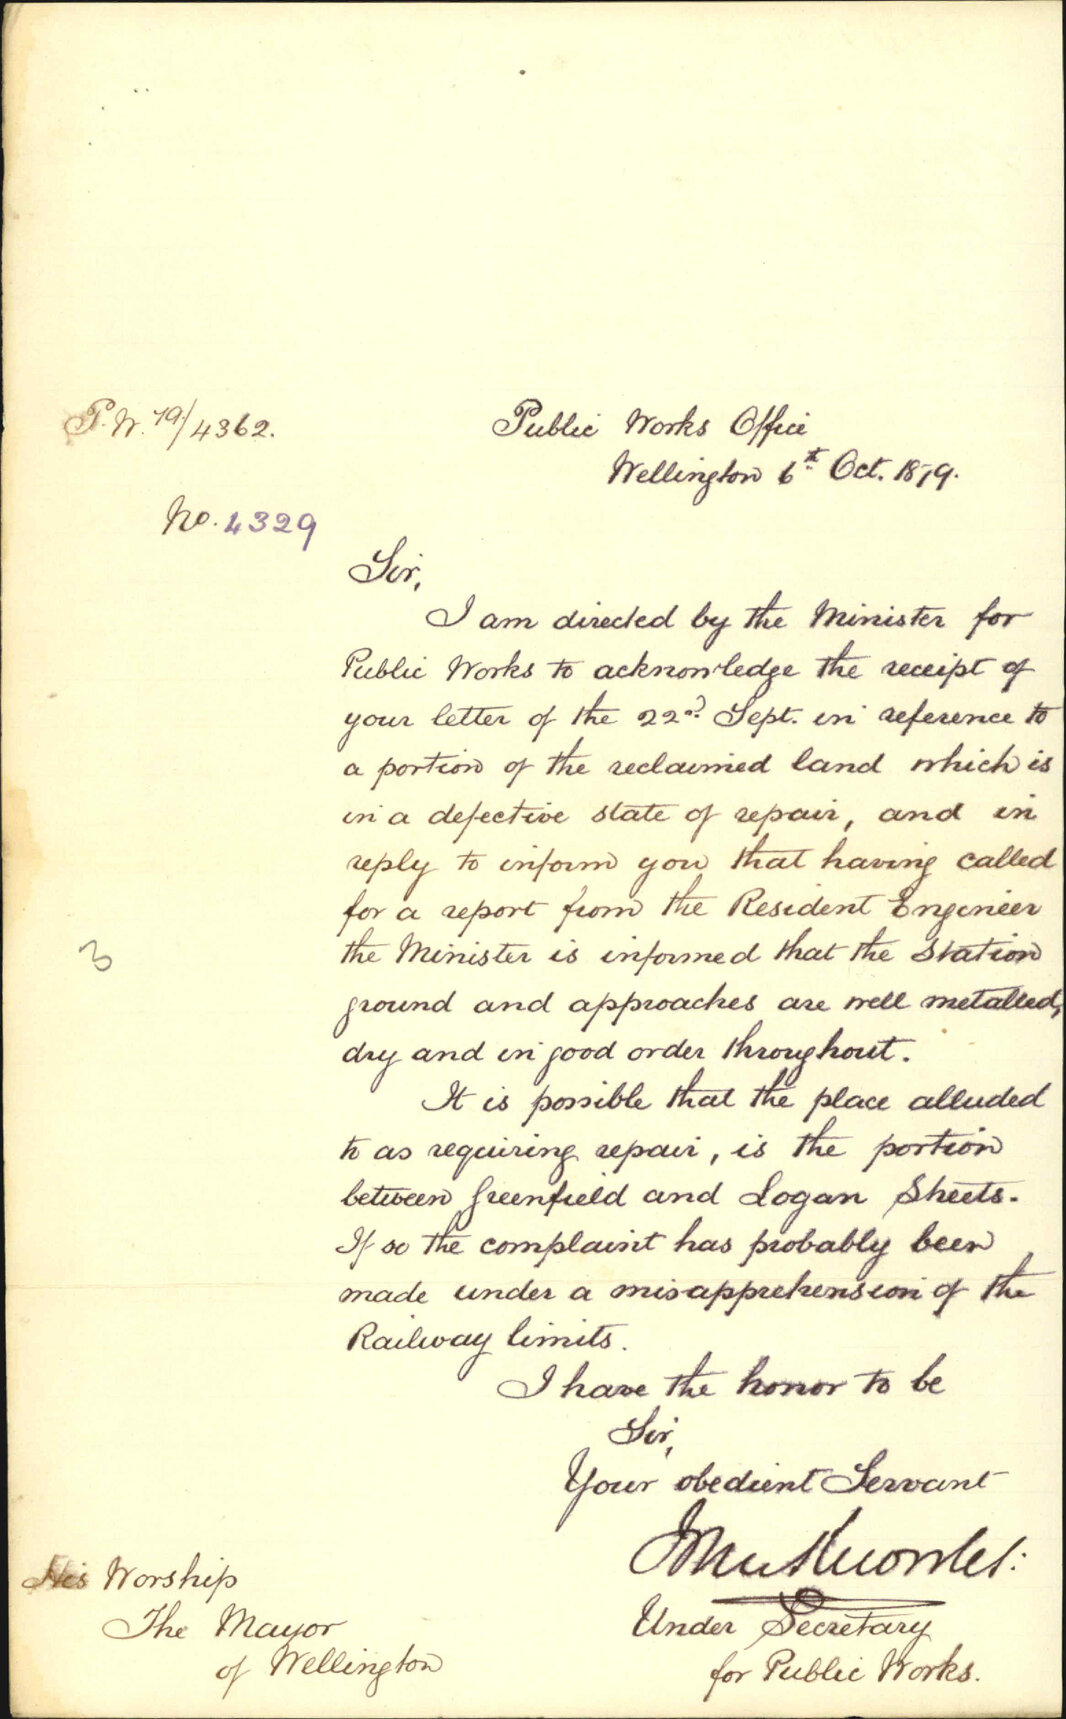 P.W. 79/4362.
Public Works Office
Wellington 6th Oct. 1879.
No. 4329
Sir,
I am directed by the Minister for
Public Works to acknowledge the receipt of
your letter of the 22nd Sept. in reference to
a portion of the reclaimed land which is
in a defective state of repair, and in
reply to inform you that having called
for a report from the Resident Engineer
3
the Minister is informed that the Station
ground and approaches are well metalled,
dry and in good order throughout.
It is possible that the place alluded
to as requiring repair, is the portion
between Greenfield and Logan Streets.
If so the complaint has probably been
made under a misapprehension of the
Railway limits.
I have the honor to be
Sir,
Your obedient Servant
John Knowles.
Under Secretary
for Public Works.
His Worship
The Mayor
of Wellington